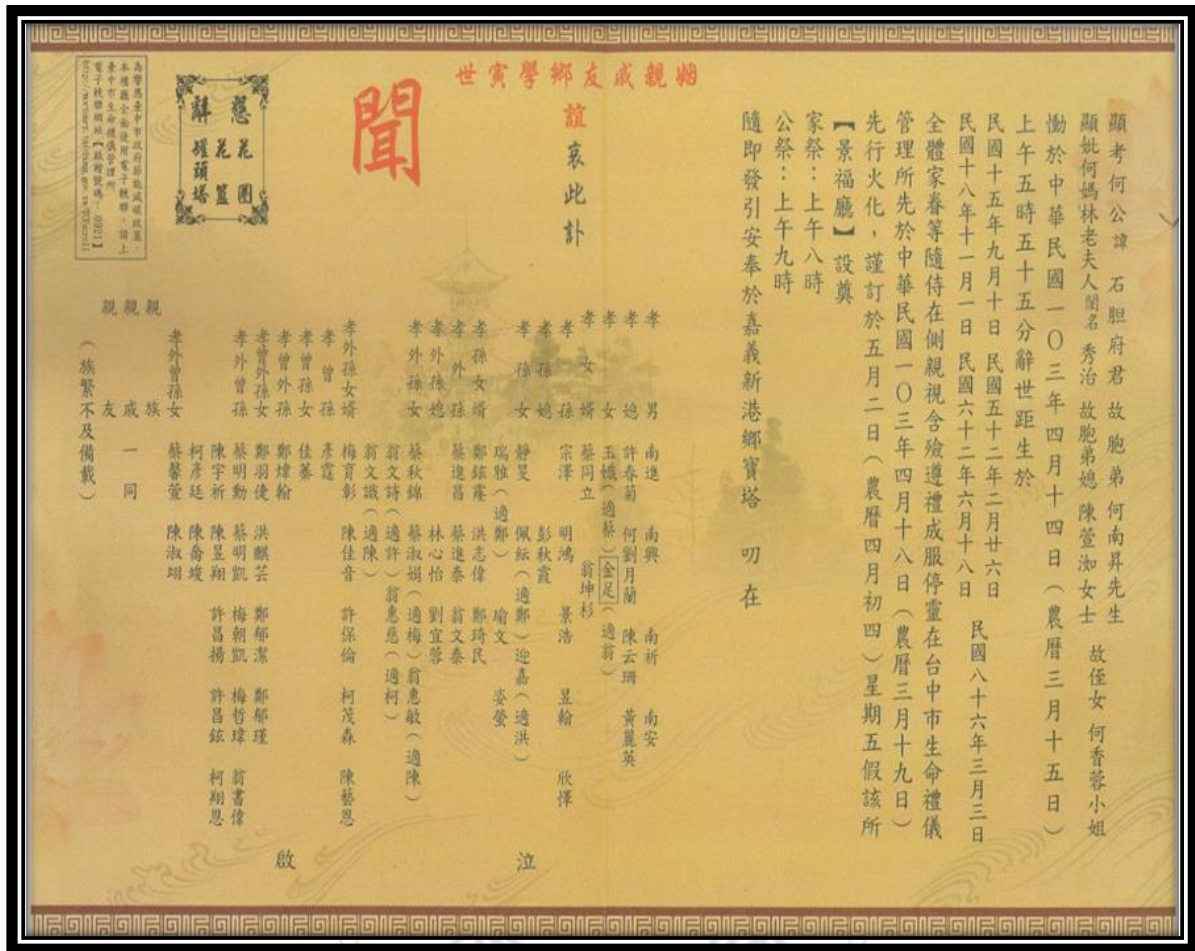 顯考何公諱 石胆府君 故胞弟 何南昇先生
顯妣何媽林老夫人閨名 秀治 故胞弟媳 陳萱洳女士 故侄女 何香蓉小姐
慟於中華民國一〇三年四月十四日（農曆三月十五日）
上午五時五十五分辭世距生於
民國十五年九月十日 民國五十二年二月廿六日
民國十八年十一月一日 民國六十二年六月十八日 民國八十六年三月三日
全體家眷等隨侍在側親視含殮遵禮成服停靈在台中市生命禮儀
管理所先於中華民國一〇三年四月十八日（農曆三月十九日）
先行火化，謹訂於五月二日（農曆四月初四）星期五假該所
【景福廳】設奠
家祭：上午八時
公祭：上午九時
隨即發引安奉於嘉義新港鄉寶塔 叨在
姻親戚友鄉學寅世
誼哀此訃
聞
孝男 南進 南興 南祈 南安
孝媳 許春菊 何劉月蘭 陳云珊 黃麗英
孝女 玉嬌（適蔡）金足（適翁）
孝女婿 蔡同立 翁坤杉
孝孫 宗澤 明鴻 景浩 昱翰 欣懌
孝孫媳 彭秋霞
孝孫女 靜旻 佩紜（適鄭）迎嘉（適洪）
瑞雅（適鄭） 瑜文 姿螢
孝孫女婿 鄭鋐霖 洪志偉 鄭琦民
孝外孫 蔡進昌 蔡進泰 翁文泰
孝外孫媳 林心怡 劉宜蓉
孝外孫女 蔡秋錦 蔡淑娟（適梅）翁惠敏（適陳）
翁文詩（適許）翁惠慈（適柯）
翁文識（適陳）
孝外孫女婿 梅育彰 陳佳音 許保倫 柯茂森 陳藝恩
孝曾孫 彥霆
孝曾孫女 佳蓁
孝曾外孫 鄭煒翰
孝曾外孫女 鄭羽倢 洪麒芸 鄭郁潔 鄭郁瑾
孝外曾孫 蔡明勳 蔡明凱 梅朝凱 梅哲瑋 翁書偉
陳宇祈 陳昱翔 許昌揚 許昌鉉 柯翔恩
柯彥廷 陳喬埈
孝外曾孫女 蔡馨萱 陳淑翊
親族
親戚一同
親友
（族繁不及備載）
泣
啟
懇 花圈
花籃
辭 罐頭塔
為響應臺中市政府節能減碳政策，
本禮廳全面使用電子輓聯，請上
臺中市生命禮儀管理所
電子輓聯網站【啟贈號碼：0921】